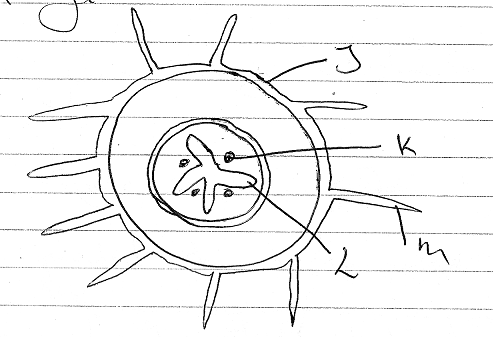 J
K
L
M